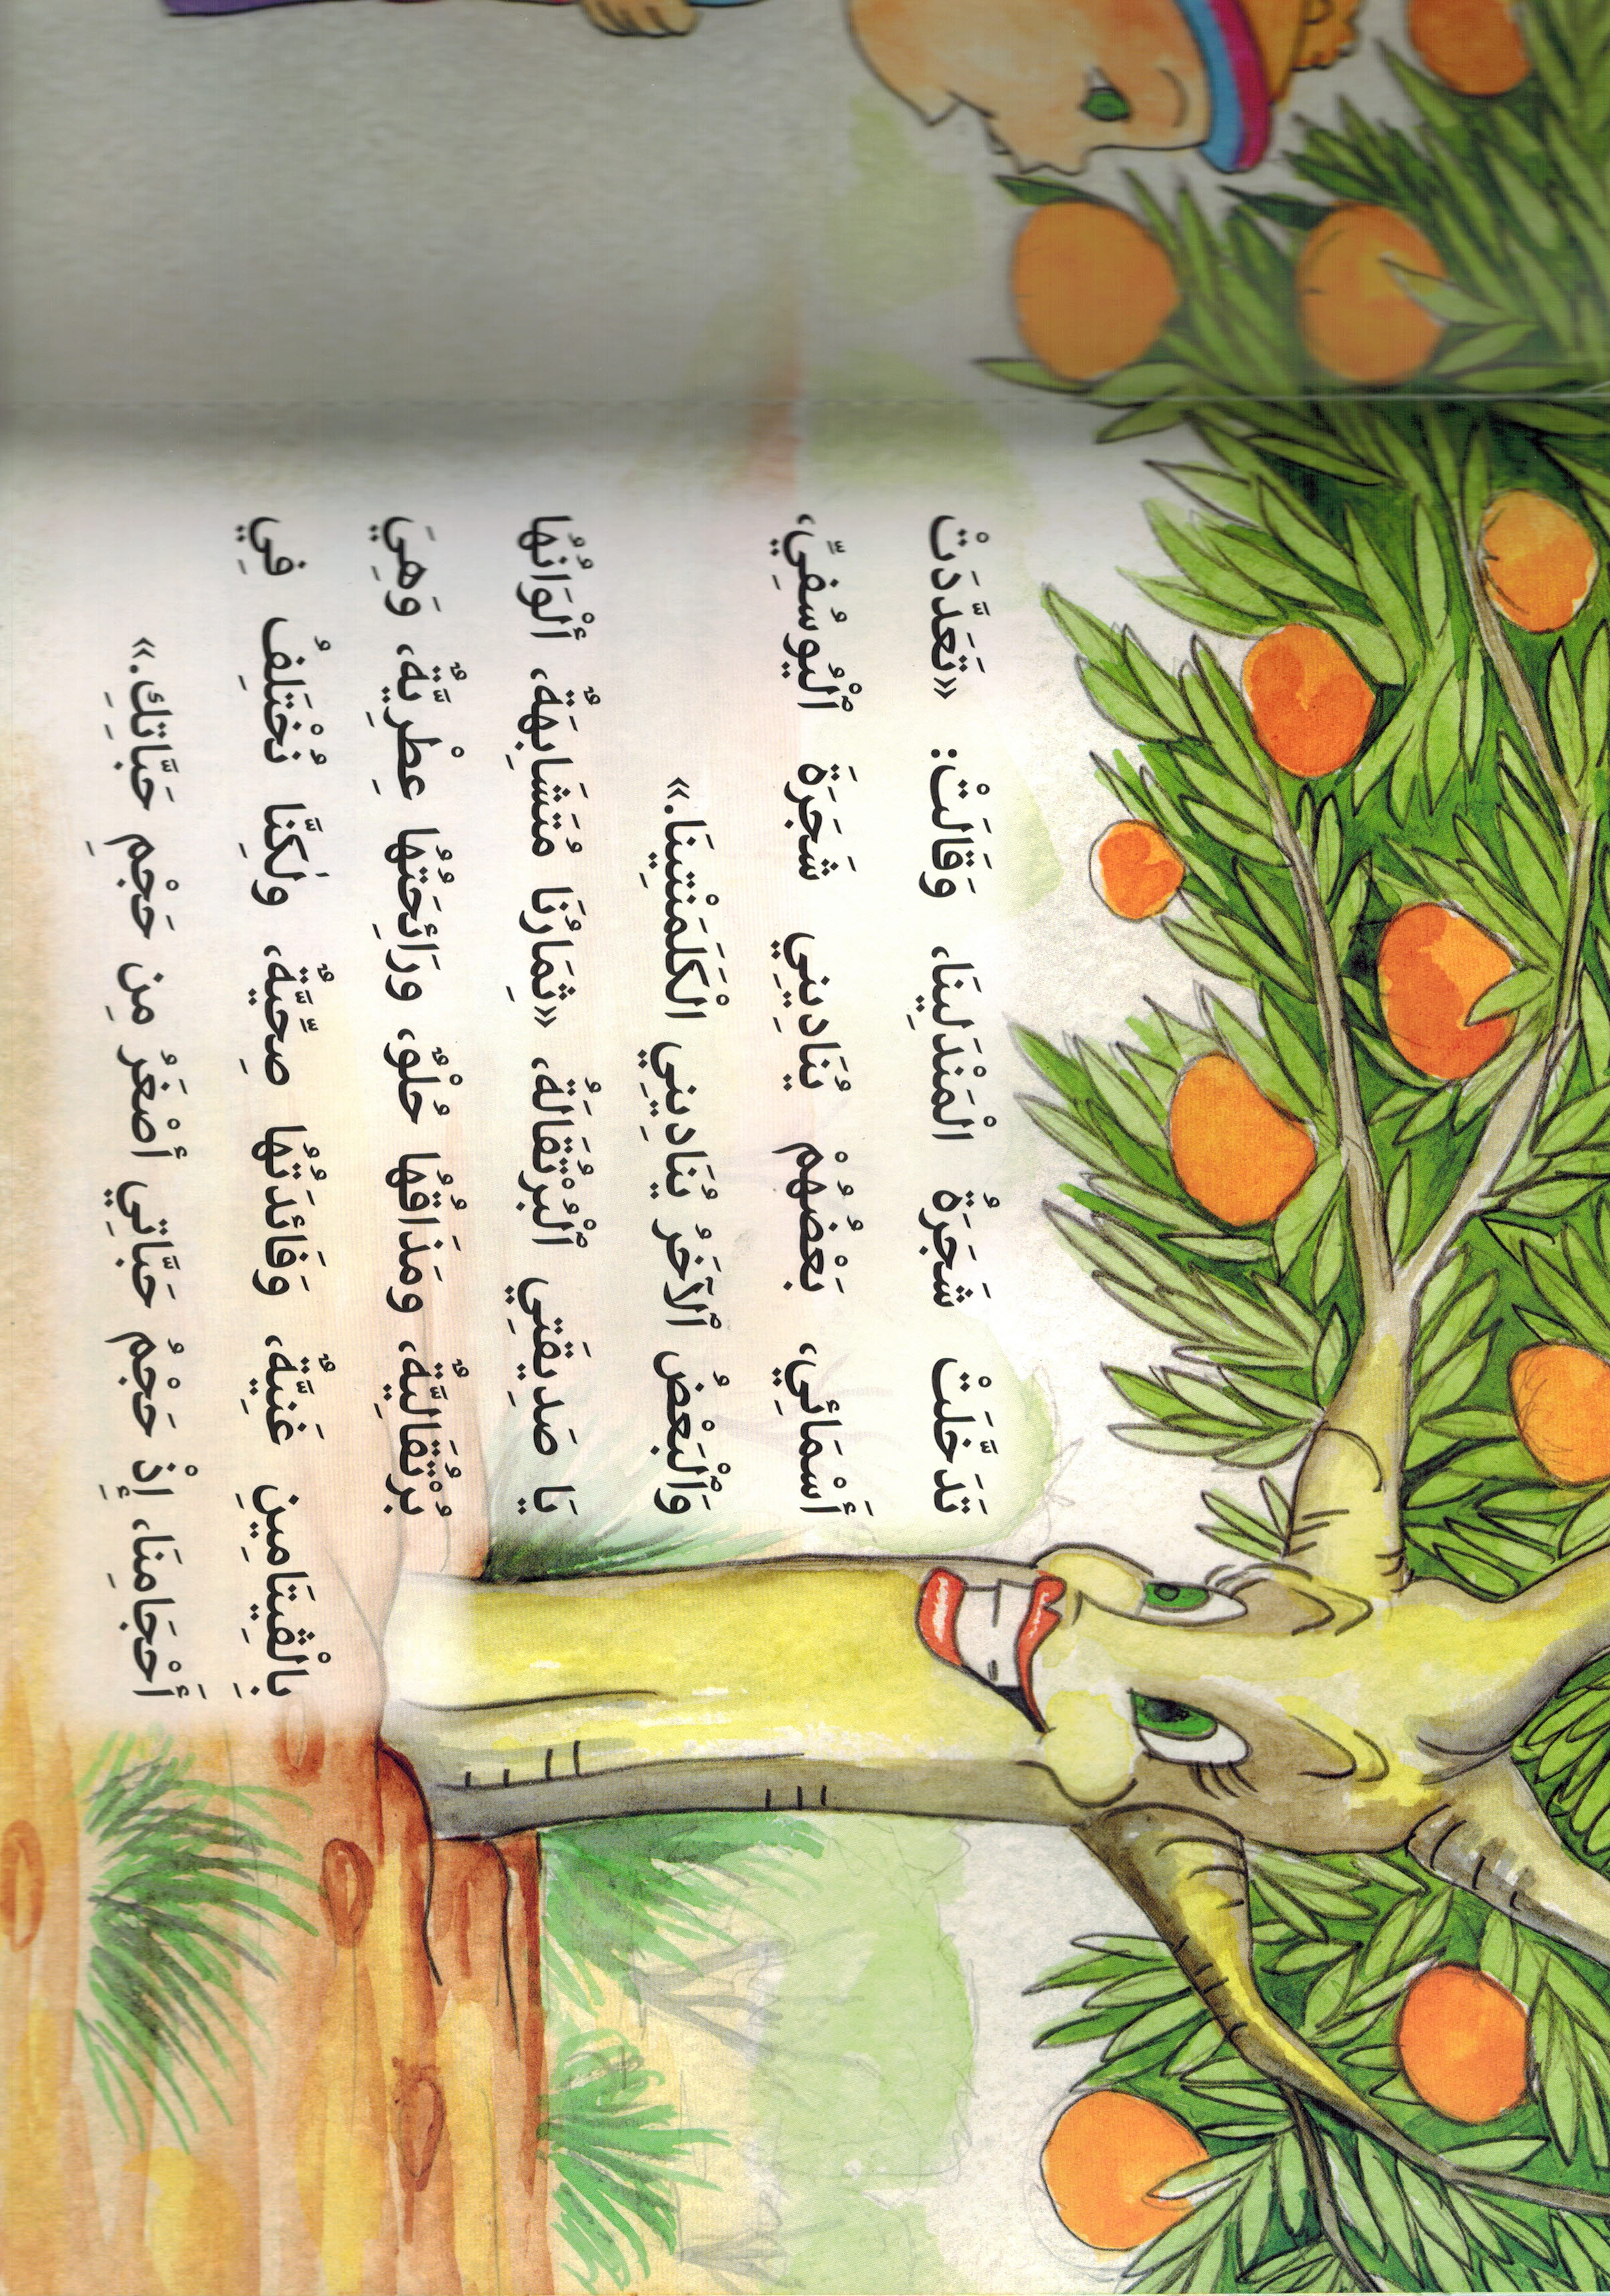 تَدَخَّلَتْ شَجَرَةُ الْمَنْدَلِينَا، وَقَالَتْ: «تَعَدَّدَتْ
أَسْمَائِي، بَعْضُهُمْ يُنَادِينِي شَجَرَةَ ٱلْيُوسُفِيِّ،
وَٱلْبَعْضُ ٱلآخَرُ يُنَادِينِي الْكَلَمَنْتِينَا.»
يَا صَدِيقَتِي ٱلْبُرْتُقَالَةُ، «ثِمَارُنَا مُتَشَابِهَةٌ، أَلْوَانُهَا
بُرْتُقَالِيَّةٌ، وَمَذَاقُهَا حُلْوٌ، وَرَائِحَتُهَا عِطْرِيَّةٌ، وَهِيَ
غَنِيَّةٌ بِالْڤِيتَامِينِ، وَفَائِدَتُهَا صِحِّيَّةٌ، وَلٰكِنَّنَا نُخْتَلِفُ فِي
أَحْجَامِنَا، إِذْ حَجْمُ حَبَّاتِي أَصْغَرُ مِن حَجْمِ حَبَّاتِكِ.»